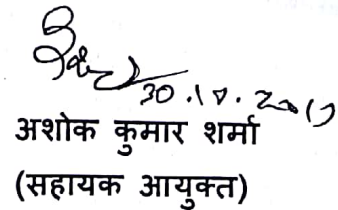 30.10.2019
अशोक कुमार शर्मा
(सहायक आयुक्त)